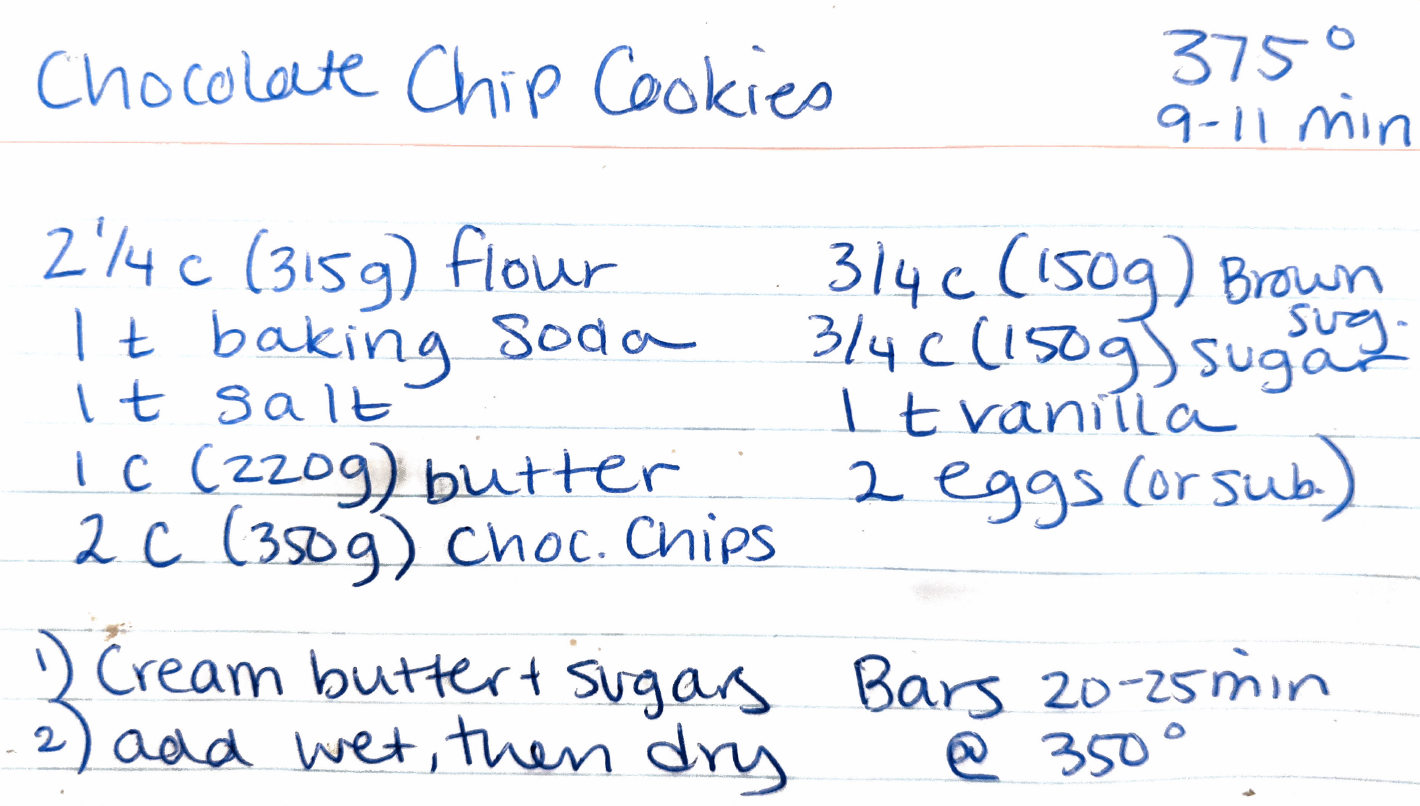 Chocolate Chip Cookies
375°
9-11 min
2 1/4 c (315g) flour
1 t baking soda
1 t salt
1 c (220g) butter
2 C (350g) Choc. Chips
3/4 c (150g) Brown sug.
3/4 c (150g) sugar
1 t vanilla
2 eggs (or sub.)
1) Cream butter + sugars
2) add wet, then dry
Bars 20-25 min
@ 350°